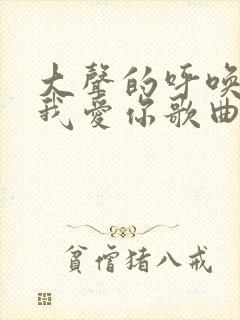 大聲的呼喚
我愛你歌曲
貧僧猪八戒